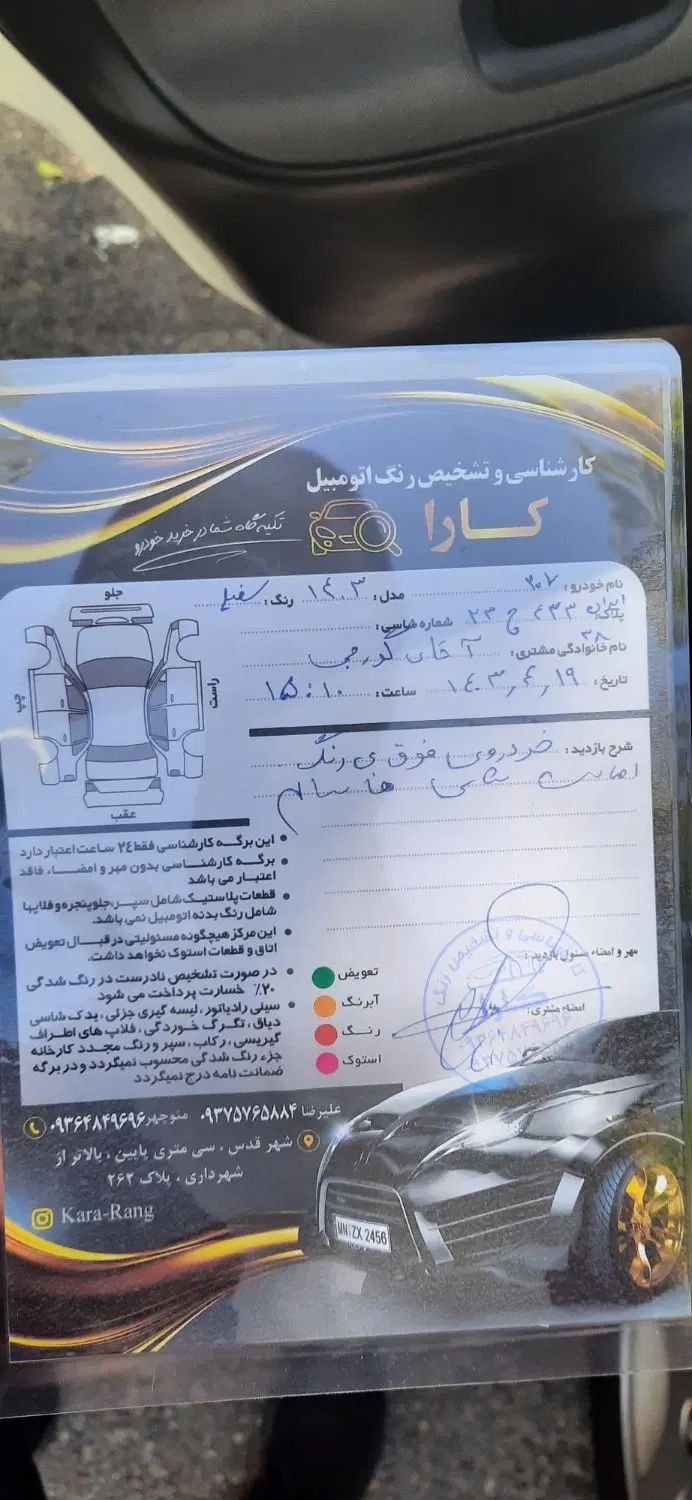 کارشناسی و تشخیص رنگ اتومبیل
کارا
تکیه گاه شما در خرید خودرو
نام خودرو: ۲۰۷ مدل: ۱۴۰۳ رنگ: سفید
پلاک: ایران ۳۸ ۴۳۳ ج ۲۳ شماره شاسی:
نام خانوادگی مشتری: آقای گورجی
تاریخ: ۱۴۰۳,۶,۱۹ ساعت: ۱۵:۱۰
جلو
راست
چپ
عقب
شرح بازدید: خودروی فوق بی رنگ
اصالت شاسی ها سالم
این برگه کارشناسی فقط ۲۴ ساعت اعتبار دارد
برگه کارشناسی بدون مهر و امضاء، فاقد
اعتبار می باشد
قطعات پلاستیک شامل سپر، جلوپنجره و فلاپها
شامل رنگ بدنه اتومبیل نمی باشد.
این مرکز هیچگونه مسئولیتی در قبال تعویض
اتاق و قطعات استوک نخواهد داشت.
در صورت تشخیص نادرست در رنگ شدگی
۲۰٪ خسارت پرداخت می شود
سینی رادیاتور، لیسه گیری جزئی، یدک شاسی
دیاق، تگرگ خوردگی، فلاپ های اطراف
گیریسی، رکاب، سپر و رنگ مجدد کارخانه
جزء رنگ شدگی محسوب نمیگردد و در برگه
ضمانت نامه درج نمیگردد
تعویض
آبرنگ
رنگ
استوک
مهر و امضاء مسئول بازدید:
امضاء مشتری:
کارشناسی و تشخیص رنگ
کارا
۰۹۳۶۴۸۴۹۶۹۶
علیرضا ۰۹۳۷۵۷۶۵۸۸۴ منوچهر ۰۹۳۶۴۸۴۹۶۹۶
شهر قدس، سی متری پایین، بالاتر از
شهرداری، پلاک ۲۶۲
Kara-Rang
MN ZX 2456